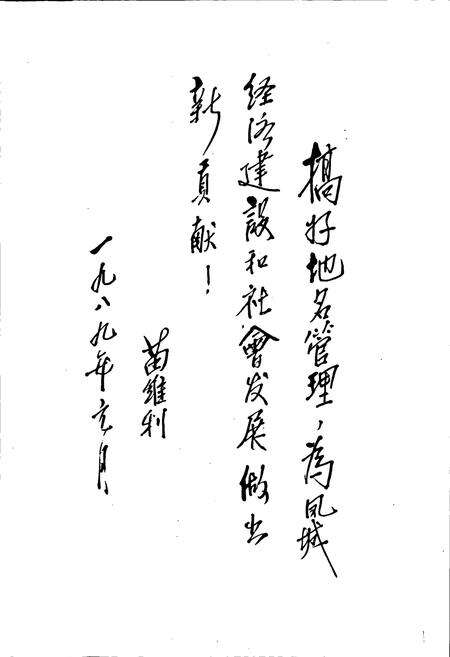 搞好地名管理，为凤城
经济建设和社會发展做出
新贡献！
苗维利
一九八九年元月